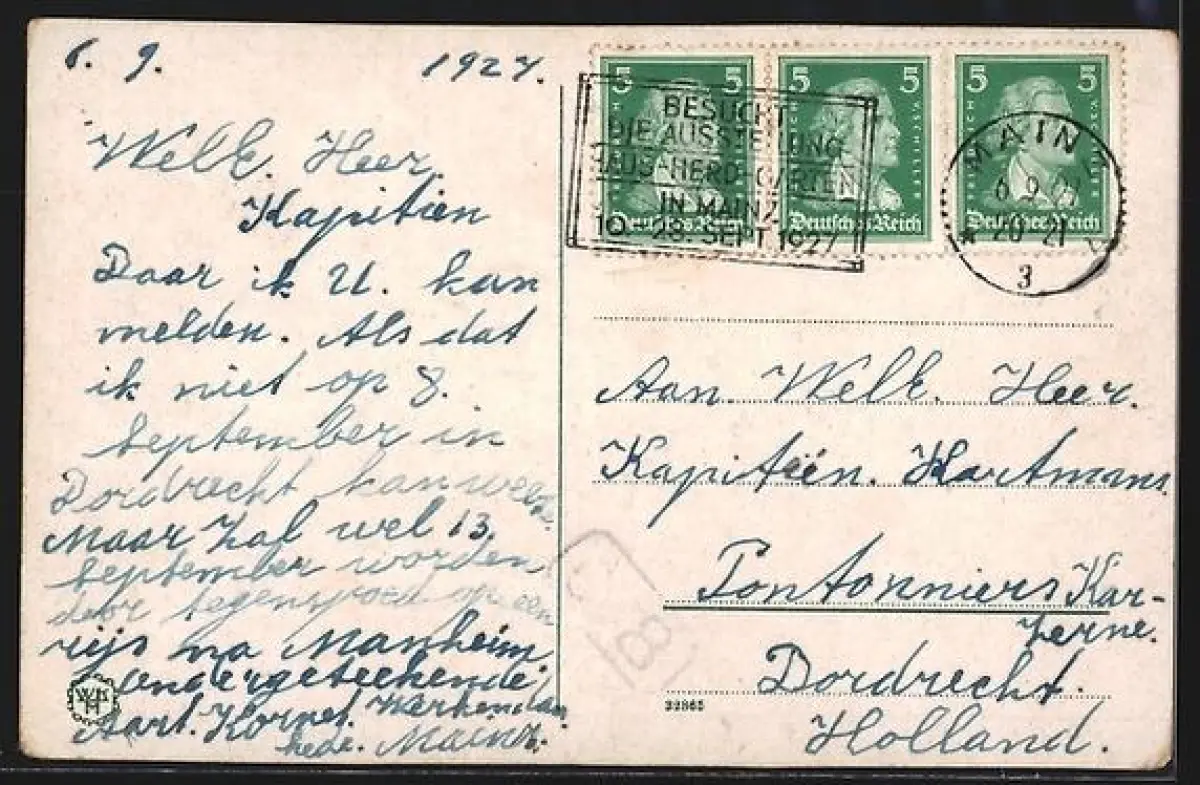 6. 9. 1927.
WelE. Heer.
Kapitien
Daar ik U. kan
melden. Als dat
ik niet op 8.
September in
Dordrecht kan
Maar zal wel 13
September worden
door tegenspoed op een
rijs na Manheim.
ondergeteekende
Aart. Kornet. Werkendam
hede. Mainz.
5 5 5
Deutsches Reich Deutsches Reich Deutsches Reich
BESUCHT
DIE AUSSTELLUNG
HAUS-HERD-GARTEN
IN MAINZ
SEPT. 1927
MAINZ
6.9.27
20-21
3
Aan. WelE. Heer.
Kapitëin. Hartmans.
Pontonniers Kar-
zerne.
Dordrecht.
Holland.
32865
WH